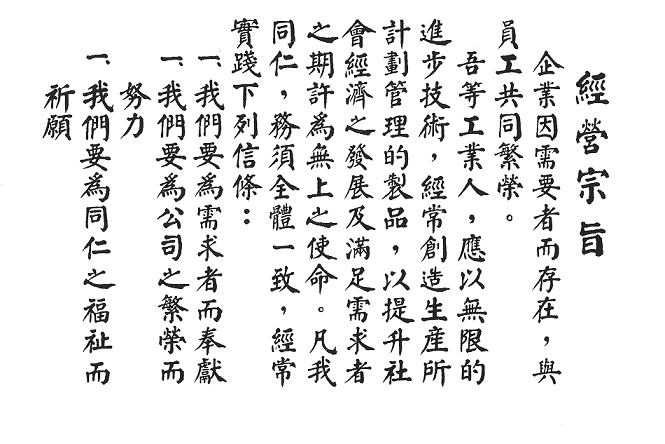 經營宗旨
企業因需要者而存在，與
員工共同繁榮。
吾等工業人，應以無限的
進步技術，經常創造生產所
計劃管理的製品，以提升社
會經濟之發展及滿足需求者
之期許為無上之使命。凡我
同仁，務須全體一致，經常
實踐下列信條：
一、我們要為需求者而奉獻
一、我們要為公司之繁榮而
努力
一、我們要為同仁之福祉而
祈願